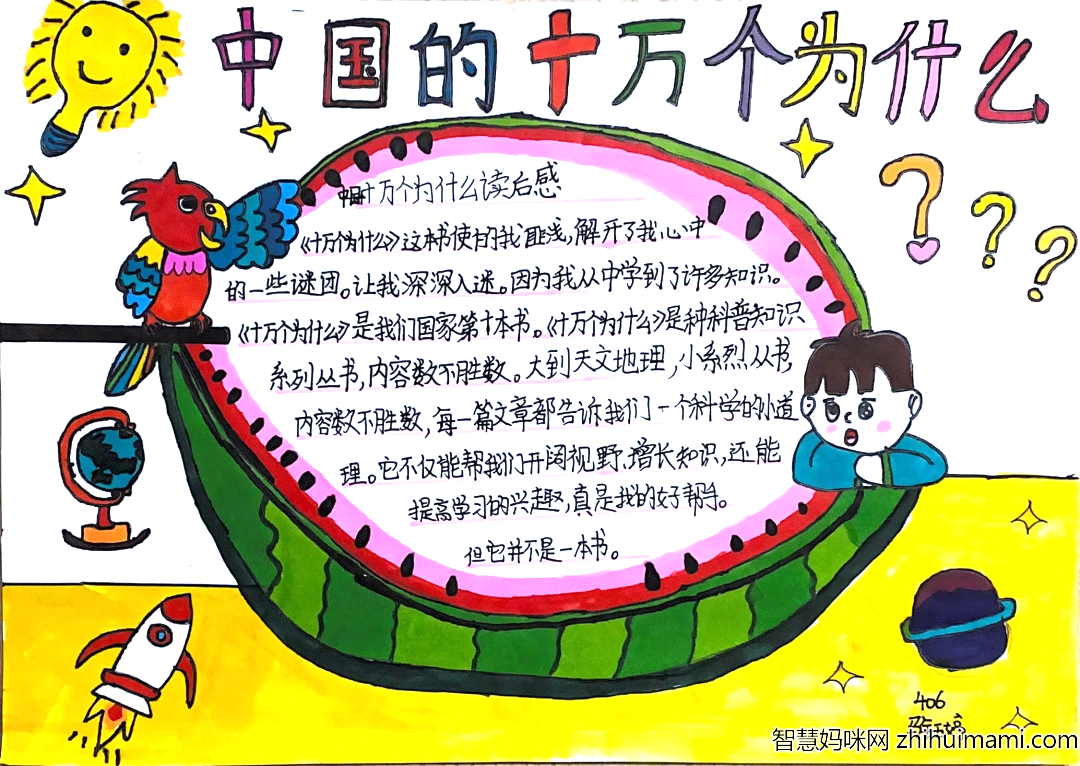 中国的十万个为什么
十万个为什么读后感
《十万个为什么》这本书使我,解开了我心中
的一些谜团。让我深深入迷。因为我从中学到了许多知识。
《十万个为什么》是我们国家第十本书。《十万个为什么》是种科普知识
系列丛书,内容数不胜数。大到天文地理,小系烈从书,
内容数不胜数,每一篇文章都告诉我们一个科学的小道
理。它不仅能帮我们开阔视野、增长知识,还能
提高学习的兴趣,真是我的好帮手。
但它并不是一本书。
406
智慧妈咪网 zhihuimami.com